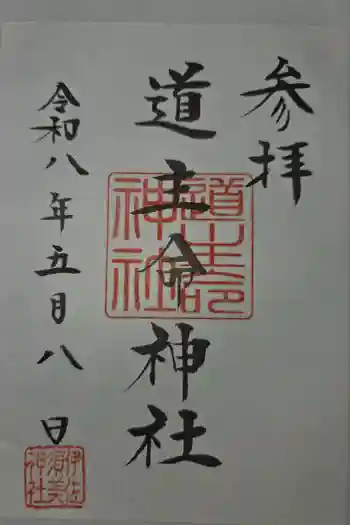 参拝
道主命神社
道主命神社
令和八年五月八日
伊佐須美神社